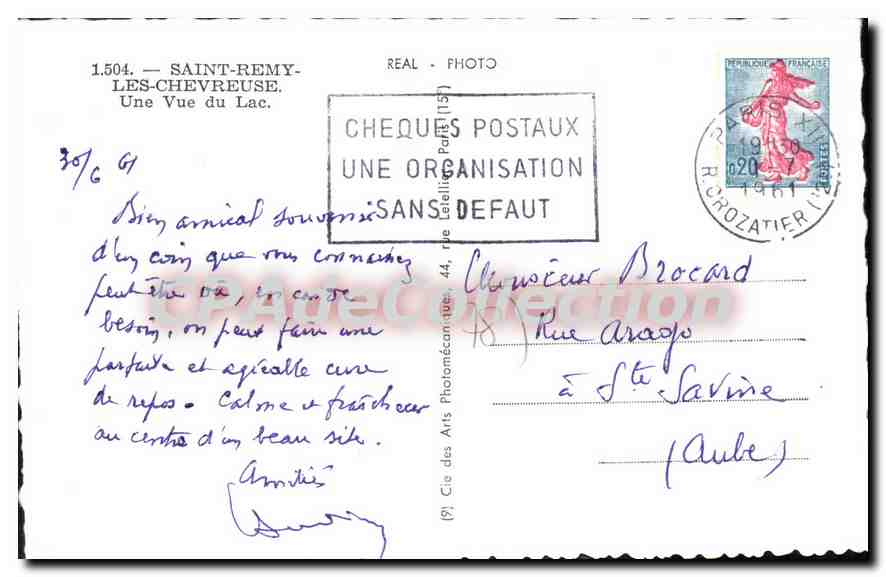 1.504. — SAINT-REMY-
LES-CHEVREUSE.
Une Vue du Lac.
REAL - PHOTO
CHEQUES POSTAUX
UNE ORGANISATION
SANS DEFAUT
REPUBLIQUE FRANÇAISE
0,20
POSTES
PARIS XII
19H30
1 - 7
1961
R. CROZATIER (12
30/6 61
Bien amical souvenir
d'un coin que vous connaissez
peut être où, en cas de
besoin, on peut faire une
parfaite et agréable cure
de repos. Calme et fraîcheur
au centre d'un beau site.
Amitiés
(9) Cie des Arts Photomécaniques, 44, rue Letellier, Paris (15e)
Monsieur Brocard
18) Rue Arago
à Ste Savine
(Aube)
CPAdeCollection